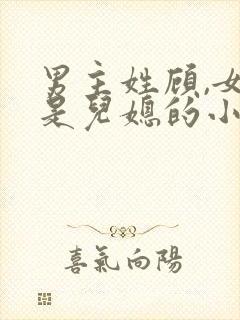 男主姓顾,女
是兒媳的小
喜氣向陽